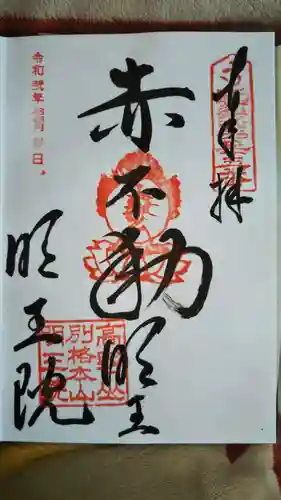 奉拝
赤不動明王
明王院
令和弐年
日。
高野山
別格本山
明王院